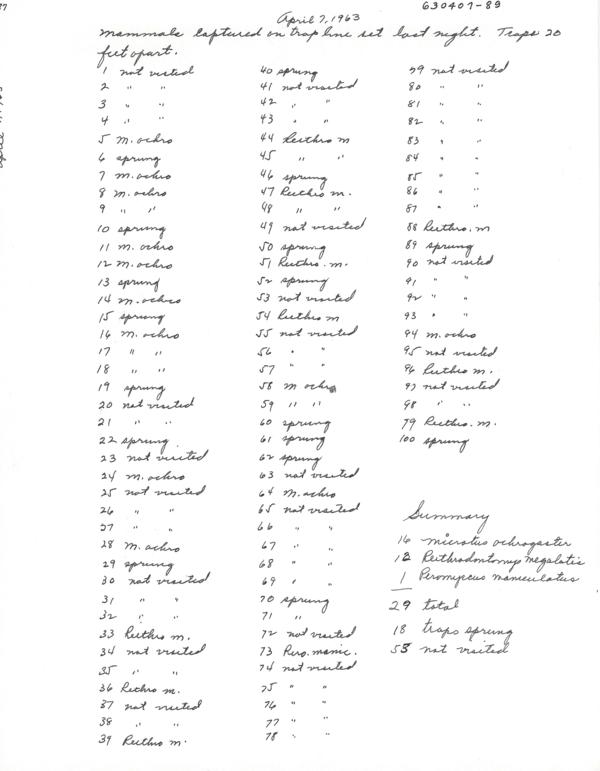 April 7, 1963
630407-89
mammals captured on trap line set last night. Traps 20
feet apart.
1 not visited
2 " "
3 " "
4 " "
5 M. ochro
6 sprung
7 M. ochro
8 M. ochro
9 " "
10 sprung
11 M. ochro
12 M. ochro
13 sprung
14 M. ochro
15 sprung
16 M. ochro
17 " "
18 " "
19 sprung
20 not visited
21 " "
22 sprung
23 not visited
24 M. ochro
25 not visited
26 " "
27 " "
28 M. ochro
29 sprung
30 not visited
31 " "
32 " "
33 Reithro m.
34 not visited
35 " "
36 Reithro m.
37 not visited
38 " "
39 Reithro m.
40 sprung
41 not visited
42 " "
43 " "
44 Reithro m
45 " "
46 sprung
47 Reithro m.
48 " "
49 not visited
50 sprung
51 Reithro. m.
52 sprung
53 not visited
54 Reithro m
55 not visited
56 " "
57 " "
58 M ochro
59 " "
60 sprung
61 sprung
62 sprung
63 not visited
64 M. ochro
65 not visited
66 " "
67 " "
68 " "
69 " "
70 sprung
71 "
72 not visited
73 Pero. manic.
74 not visited
75 " "
76 " "
77 " "
78 " "
79 not visited
80 " "
81 " "
82 " "
83 " "
84 " "
85 " "
86 " "
87 " "
88 Reithro. m
89 sprung
90 not visited
91 " "
92 " "
93 " "
94 M. ochro
95 not visited
96 Reithro m.
97 not visited
98 " "
99 Reithro. m.
100 sprung
Summary
16 microtus ochrogaster
12 Reithrodontomys megalotis
1 Peromyscus maniculatus
29 total
18 traps sprung
53 not visited